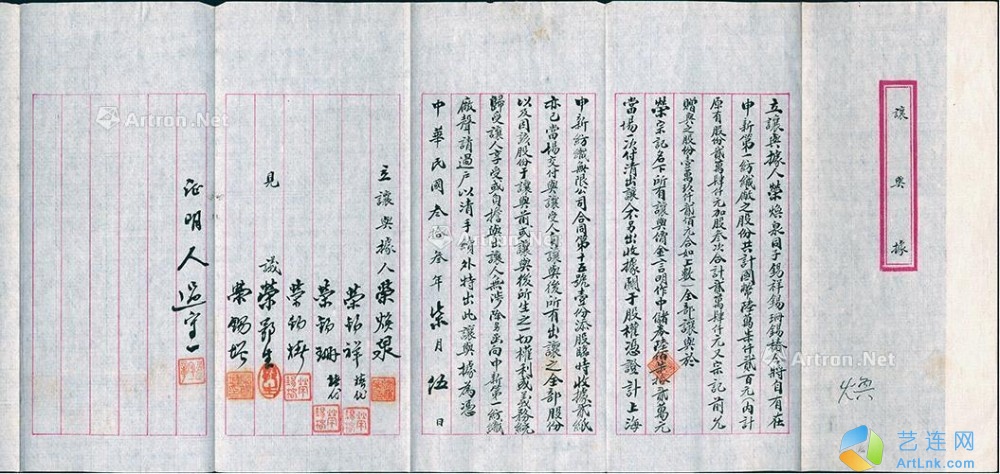 讓與據
立讓與據人榮煥泉同子錫祥錫珊錫椿今將自有在
申新第一紡織廠之股份共計國幣陸萬柒仟貳百元(內計
原有股份貳萬肆仟元加股叁次合計貳萬肆仟元又宗記前允
贈與之股份壹萬玖仟貳佰元合如上數)全部讓與於
榮宗記名下所有讓與價金言明作中儲券陸佰柒拾貳萬元
當場一次付清出讓人不另出收據關于股權憑證計上海
申新紡織無限公司合同第十五號壹份添股臨時收據貳紙
亦已當場交付與讓受人自讓與後所有出讓之全部股份
以及因該股份于讓與前或讓與後所生之一切權利或義務統
歸受讓人享受或負擔與出讓人無涉除另函向申新第一紡織
廠聲請過戶以清手續外特出此讓與據為憑
中華民國叁拾叁年柒月伍日
立讓與據人榮煥泉
榮錫祥
榮錫珊
見議榮鄂生
証明人過守一
Artron.Net
艺连网
ArtLnk.com